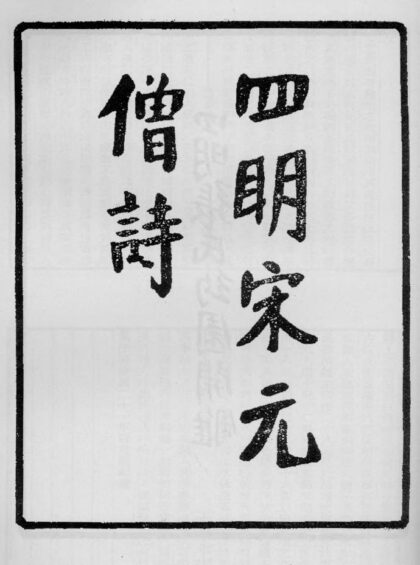 四明宋元
僧詩